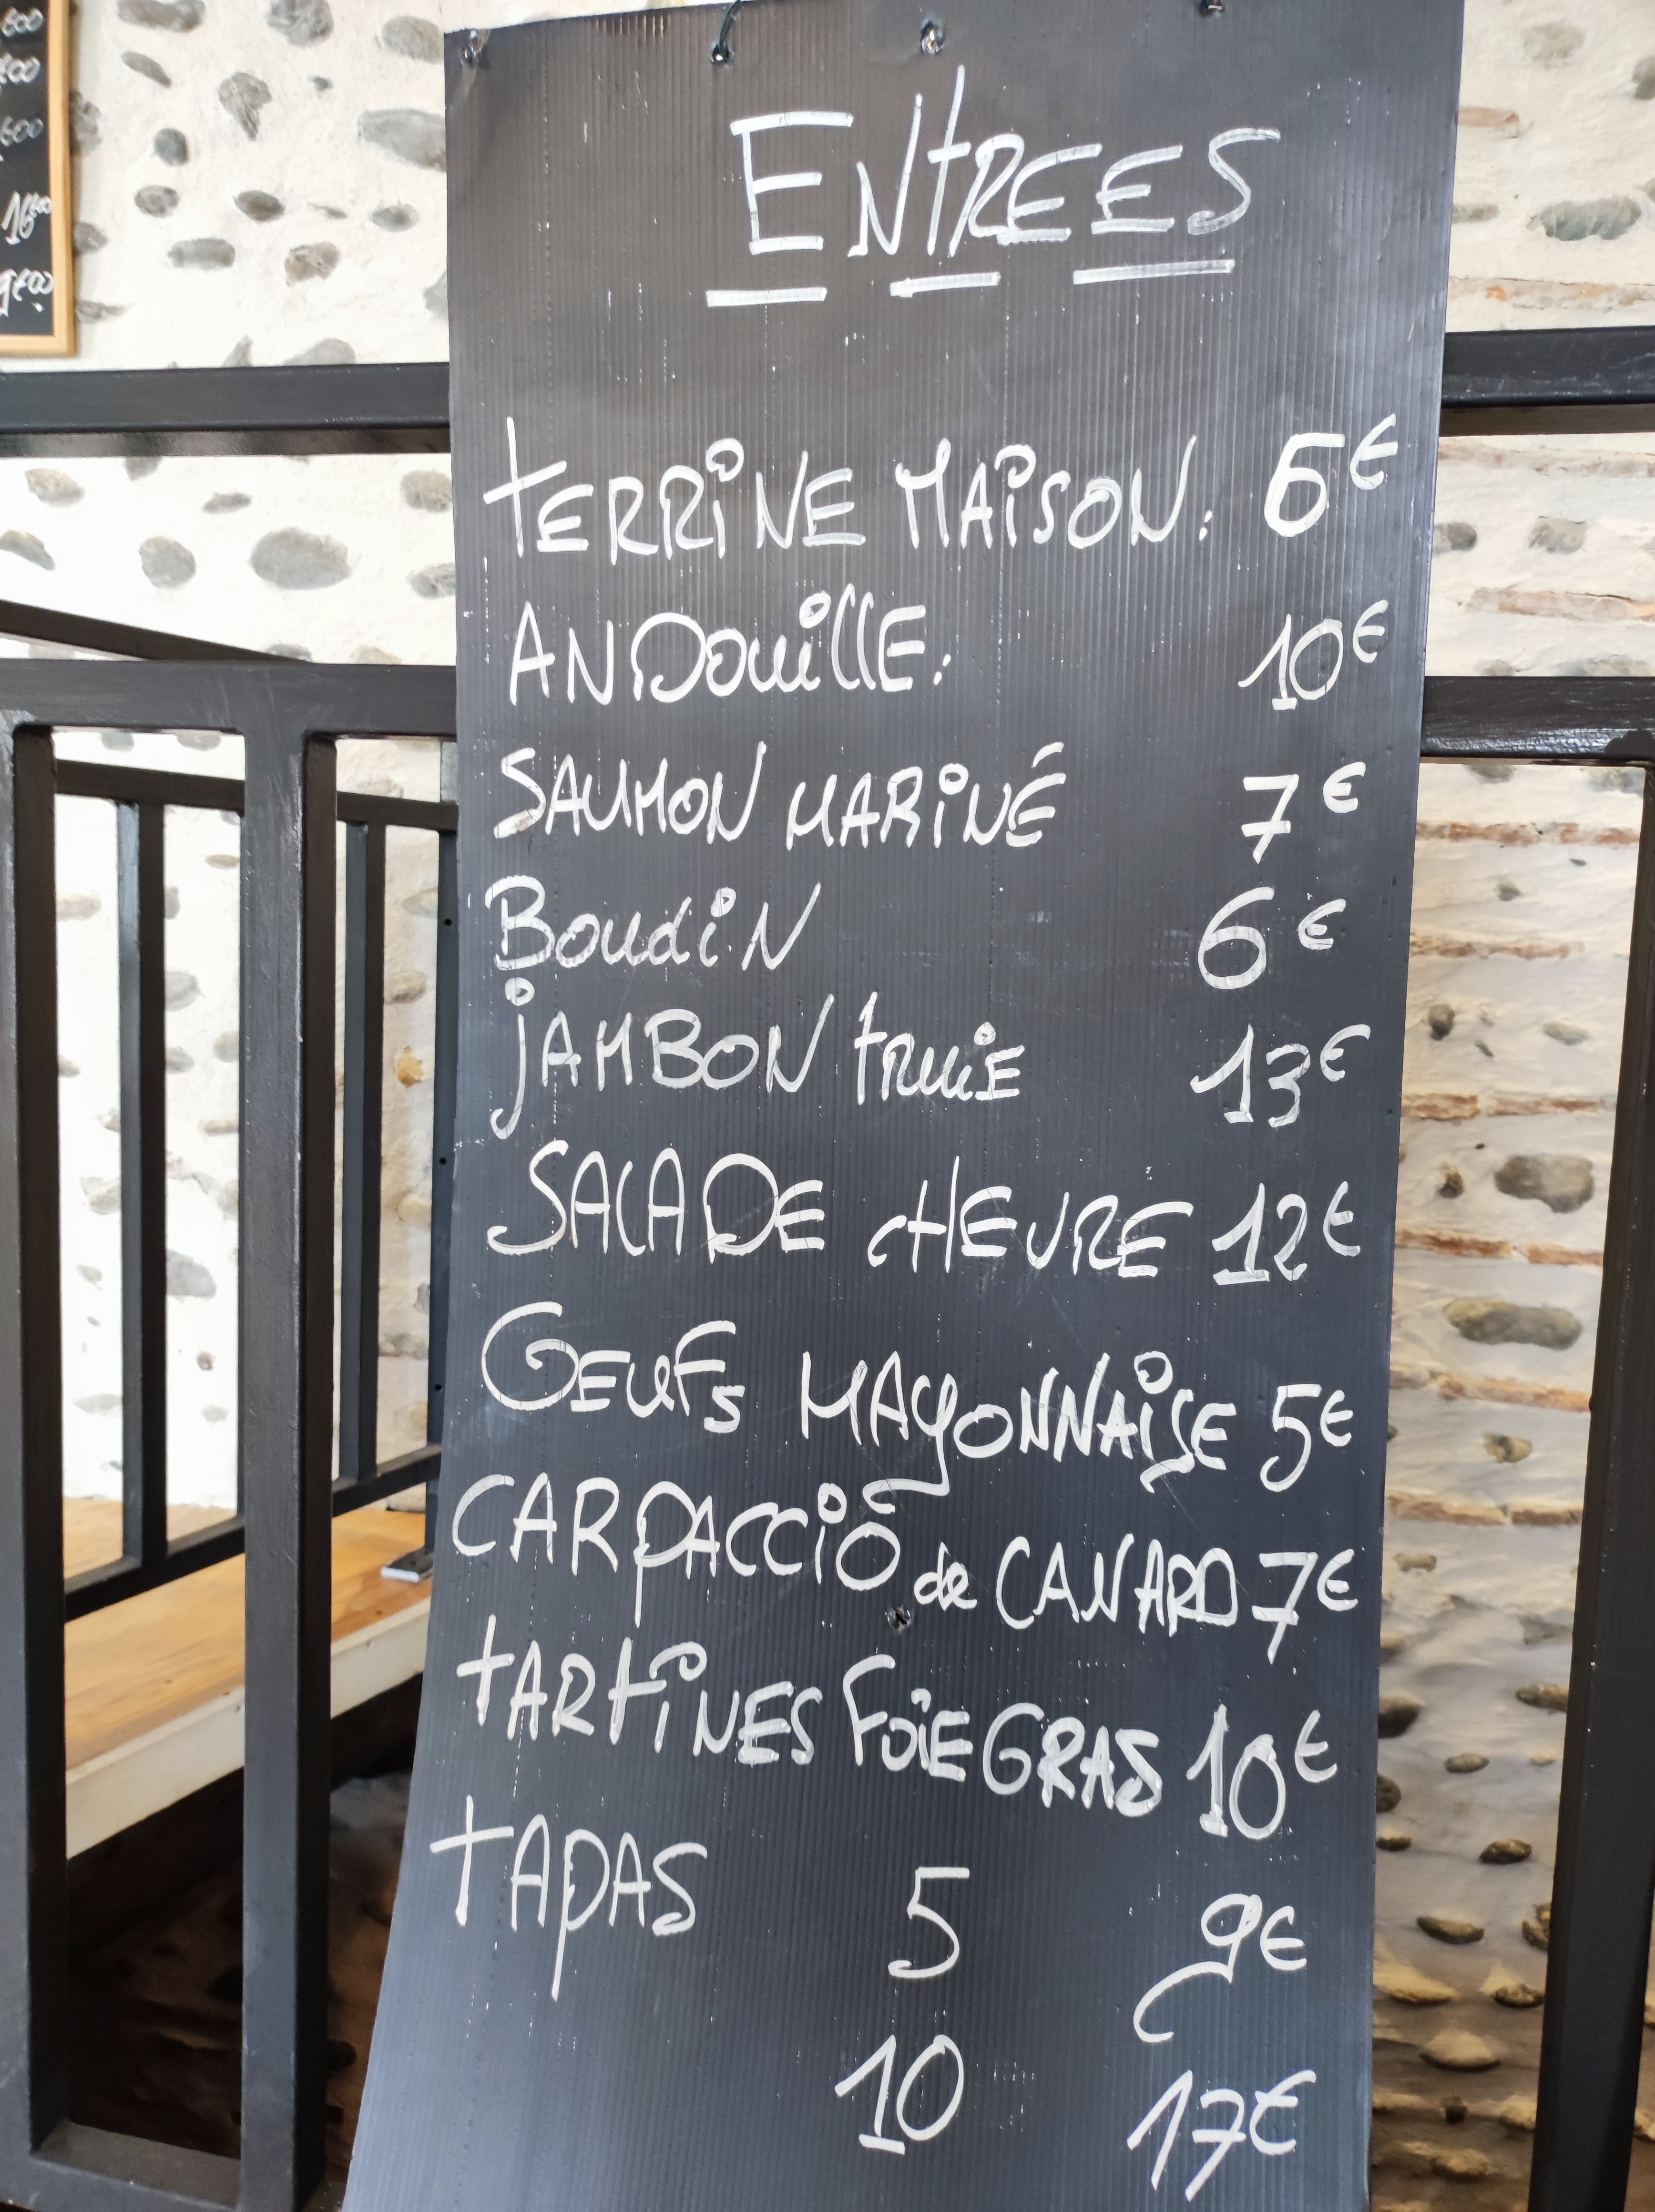 600
16
9€00
ENTREES
TERRINE MAISON: 6€
ANDOUILLE: 10€
SAUMON MARINÉ 7€
BOUDIN 6€
JAMBON TRUIE 13€
SALADE CHEVRE 12€
OEUFS MAYONNAISE 5€
CARPACCIO de CANARD 7€
TARTINES FOIE GRAS 10€
TAPAS 5 9€
10 17€